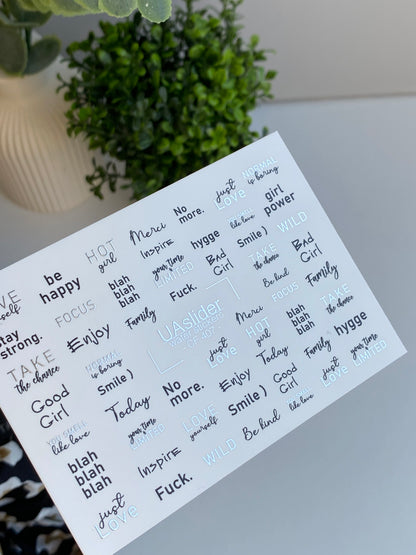 VE
self
be
happy
HOT
girl
Merci
No
more.
just
Love
NORMAL
is boring
tay
strong.
FOCUS
blah
blah
blah
Inspire
your time
LIMITED
hygge
like love
girl
power
TAKE
the chance
Enjoy
Family
Fuck.
BAD
Girl
Smile )
WILD
Good
Girl
NORMAL
is boring
Smile )
UAslider
TAKE
the chance
BAD
Girl
Be kind
Merci
FOCUS
TAKE
the chance
YOU SMELL
like love
Today
No
more.
just
Love
HOT
girl
blah
blah
blah
hygge
blah
blah
blah
your time
LIMITED
LOVE
yourself
Enjoy
Today
Family
Inspire
Smile )
Good
Girl
just
Love
your time
LIMITED
just
Love
Fuck.
WILD
Be kind
like love